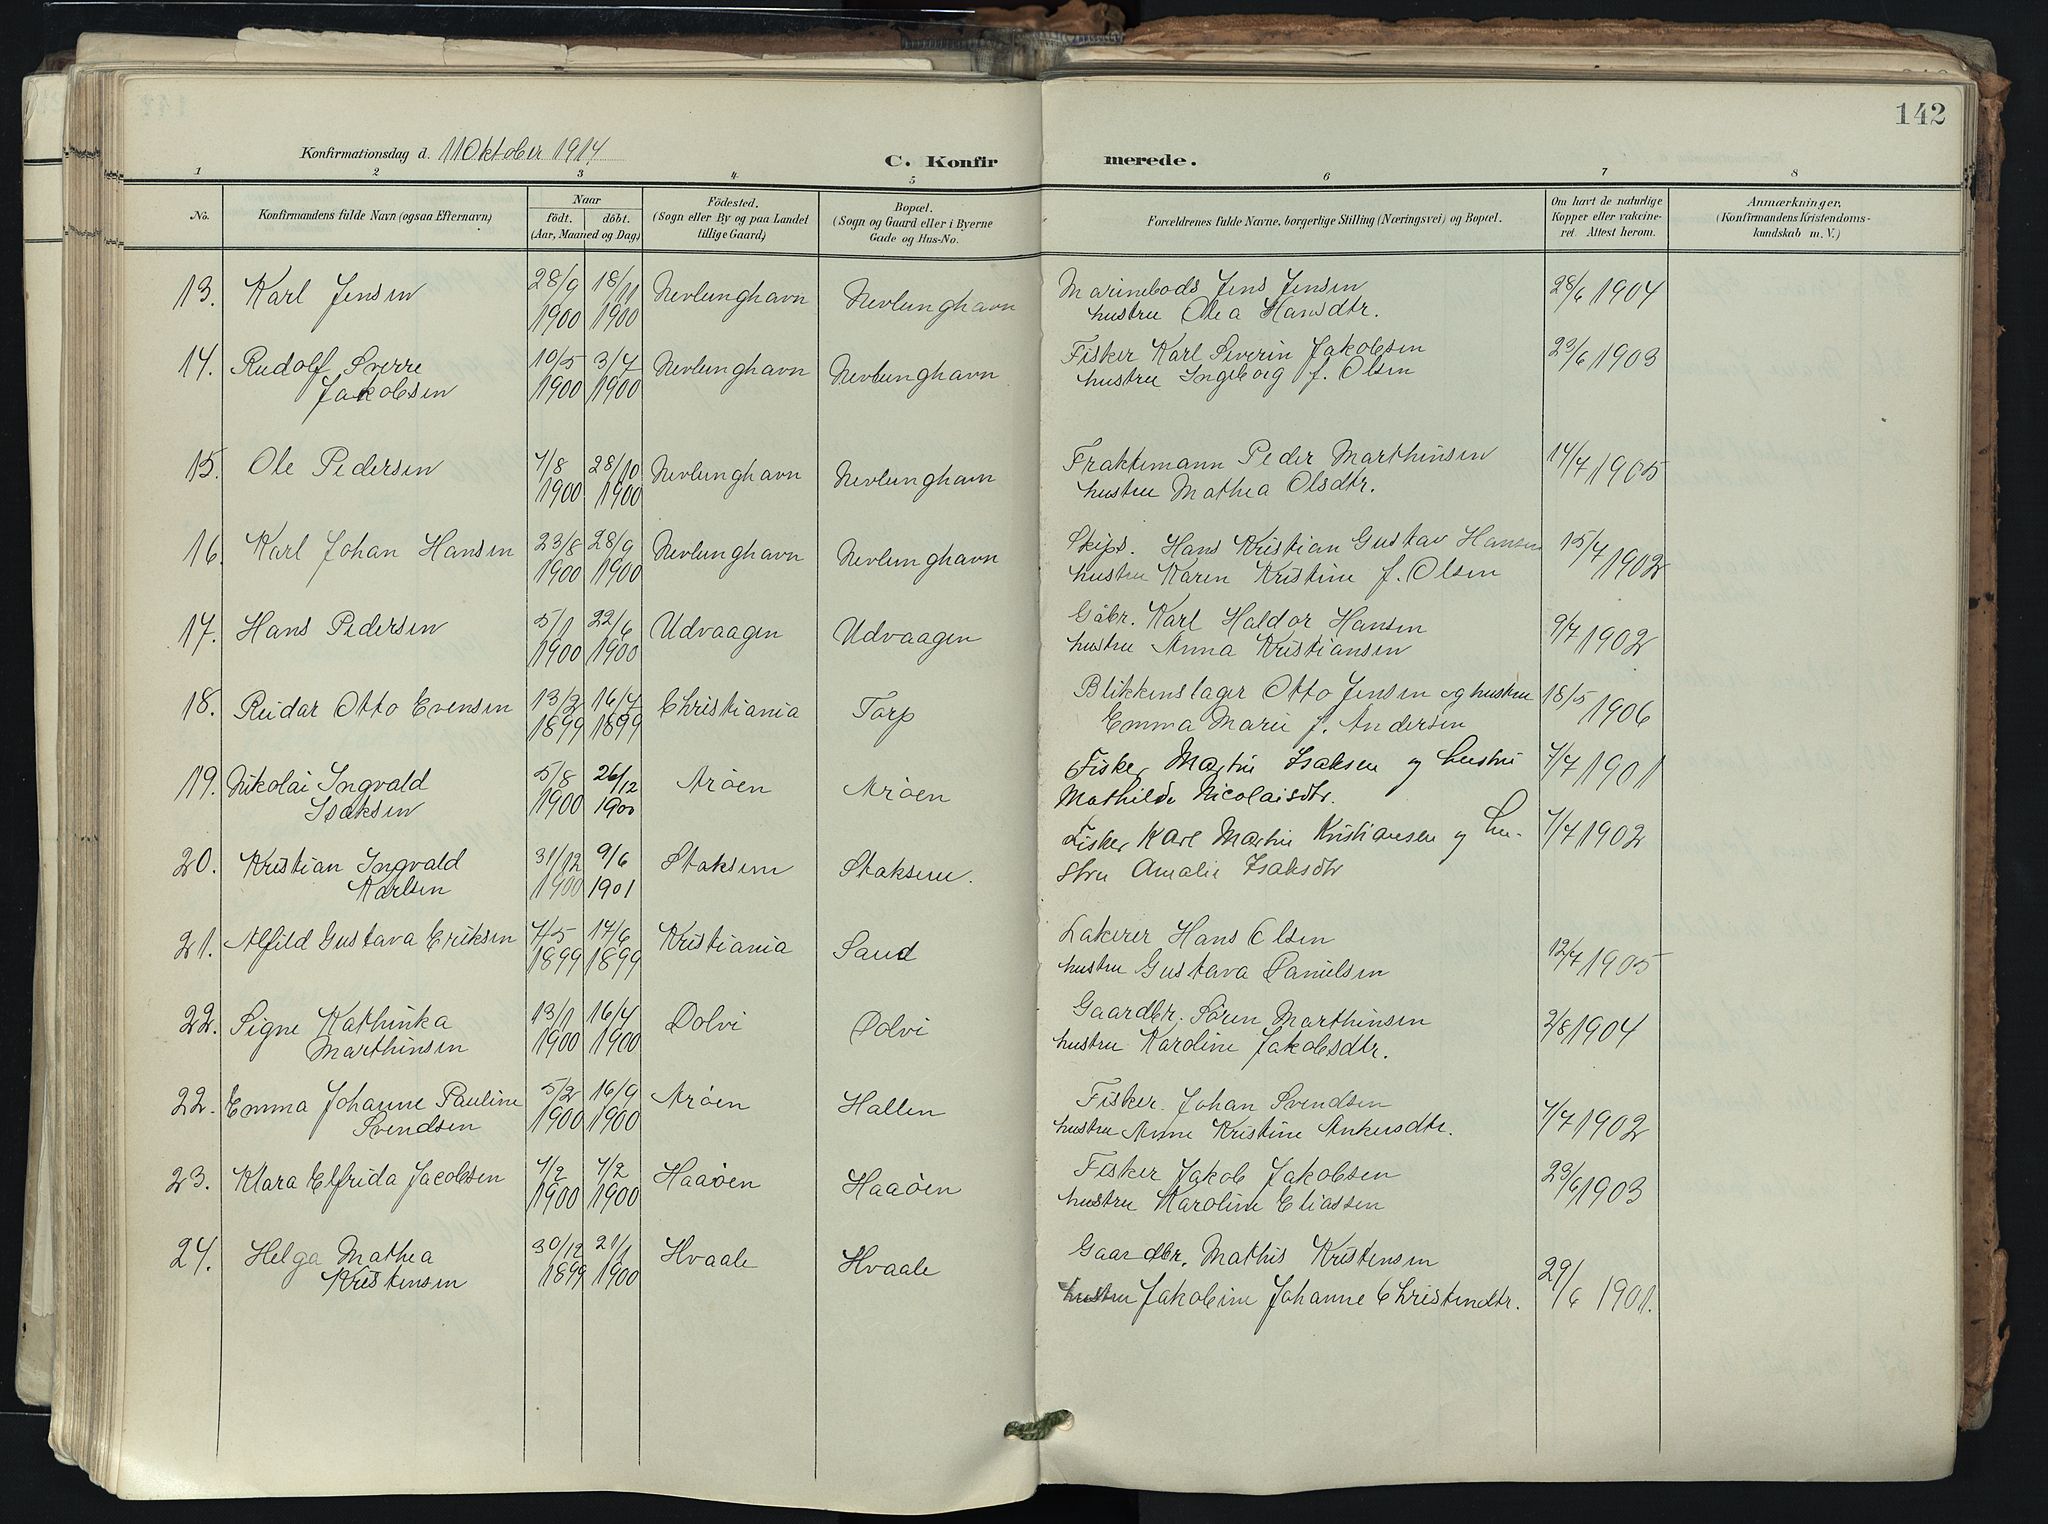 142
Konfirmationsdag d. 11 Oktober 1914
C. Konfirmerede.
1 2 3 4 5 6 7 8
No. | Konfirmandens fulde Navn (ogsaa Efternavn) | Naar født. døbt. (Aar, Maaned og Dag) | Fødested. (Sogn eller By og paa Landet tillige Gaard) | Bopæl. (Sogn og Gaard eller i Byerne Gade og Hus-No. | Forældrenes fulde Navne, borgerlige Stilling (Næringsvei) og Bopæl. | Om havt de naturlige Kopper eller vakcineret. Attest herom. | Anmærkninger. (Konfirmandens Kristendomskundskab m. V.)
13. Karl Jensen 28/9 1900 18/11 1900 Nevlunghavn Nevlunghavn Marinebøds Jens Jensen 28/6 1904
hustru Olea Hansdtr.
14. Rudolf Sverre 10/5 1900 3/7 1900 Nevlunghavn Nevlunghavn Fisker Karl Severin Jakobsen 23/6 1903
Jakobsen hustru Ingeborg f. Olsen
15. Ole Pedersen 7/8 1900 28/10 1900 Nevlunghavn Nevlunghavn Fraktemann Peder Marthinsen 14/7 1905
hustru Mathea Olsdtr.
16. Karl Johan Hansen 23/8 1900 28/9 1900 Nevlunghavn Nevlunghavn Skips. Hans Kristian Gustav Hansen 15/7 1902
hustru Karen Kristine f. Olsen
17. Hans Pedersen 5/1 1900 22/6 1900 Udvaagen Udvaagen Gåbr. Karl Haldor Hansen 9/7 1902
hustru Anna Kristiansen
18. Reidar Otto Evensen 13/2 1899 16/7 1899 Christiania Torp Blikkenslager Otto Jensen og hustru 18/5 1906
Emma Marie f. Andersen
19. Nikolai Ingvald 5/8 1900 26/12 1900 Arøen Arøen Fisker Martin Isaksen og hustru 7/7 1901
Isaksen Mathilde Nicolaisdtr.
20. Kristian Ingvald 31/12 1900 9/6 1901 Stoksem Stoksem. Fisker Karl Martin Kristiansen og hu- 7/7 1902
Karlsen stru Amalie Isaksdtr
21. Alfild Gustava Eriksen 7/5 1899 17/6 1899 Kristiania Sand Lakerer Hans Olsen 12/7 1905
hustru Gustava Danielsen
22. Signe Kathinka 13/1 1900 16/4 1900 Dolvi Dolvi Gaardbr. Søren Marthinsen 2/8 1904
Marthinsen hustru Karoline Jakobsdtr.
22. Emma Johanne Pauline 5/2 1900 16/9 1900 Arøen Hallen Fisker. Johan Svendsen 7/7 1902
Svendsen hustru Anne Kristine Ankersdtr.
23. Klara Elfrida Jacobsen 7/2 1900 7/2 1900 Haaøen Haaøen Fisker Jakob Jakobsen 23/6 1903
hustru Karoline Eliassen
24. Helga Mathea 30/12 1899 21/1 1900 Hvaale Hvaale Gaardbr. Mathis Kristensen 29/6 1901.
Kristensen hustru Jakobine Johanne Christendtr.